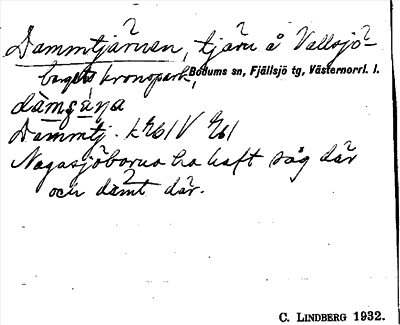 Dammtjärnen, tjärn å Vallsjö-
bergets kronopark, Bodums sn, Fjällsjö tg, Västernorrl. l.
dàmɡa̠ṇa
Dammtj.
Nagasjöborna ha haft såg där
och dämt där.
C. LINDBERG 1932.